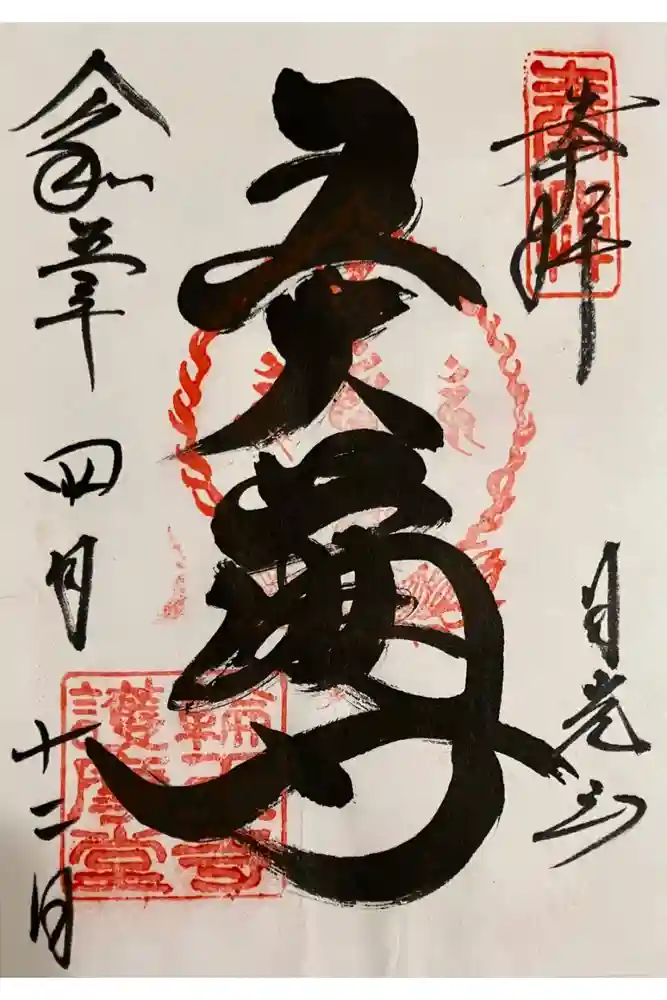 奉拝
奉拝
日光山
五大尊
輪王寺
護摩堂
令和
年
四月
十二日